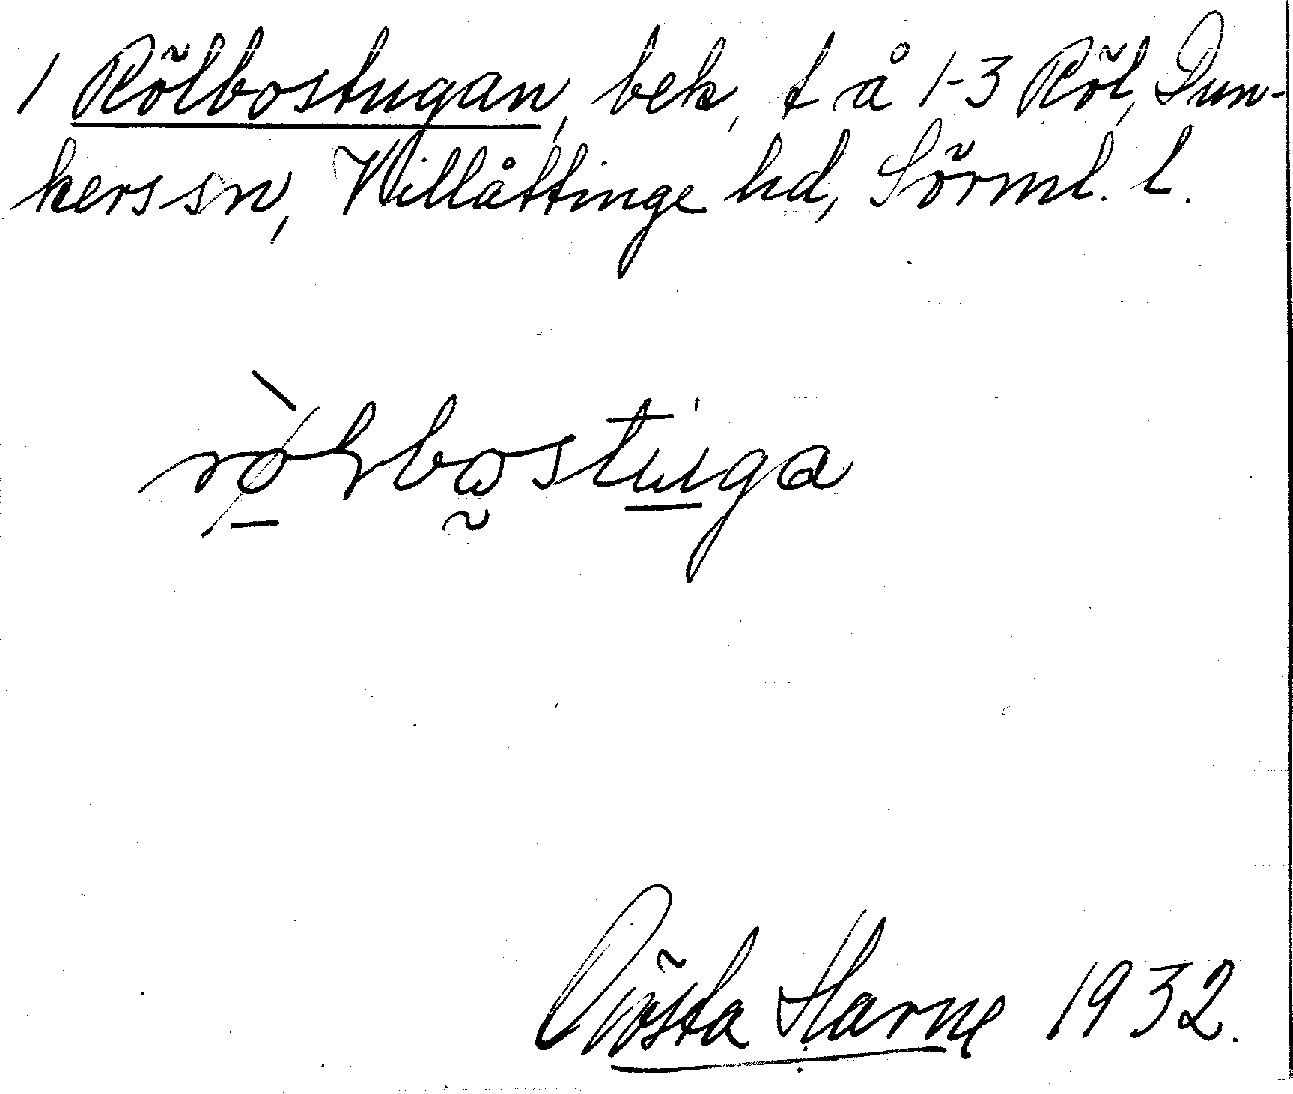 1 Rölbostugan, bek, t å 1-3 Röl, Dun-
kers sn, Villåttinge hd, Sörml. l.
Gösta Harne 1932.